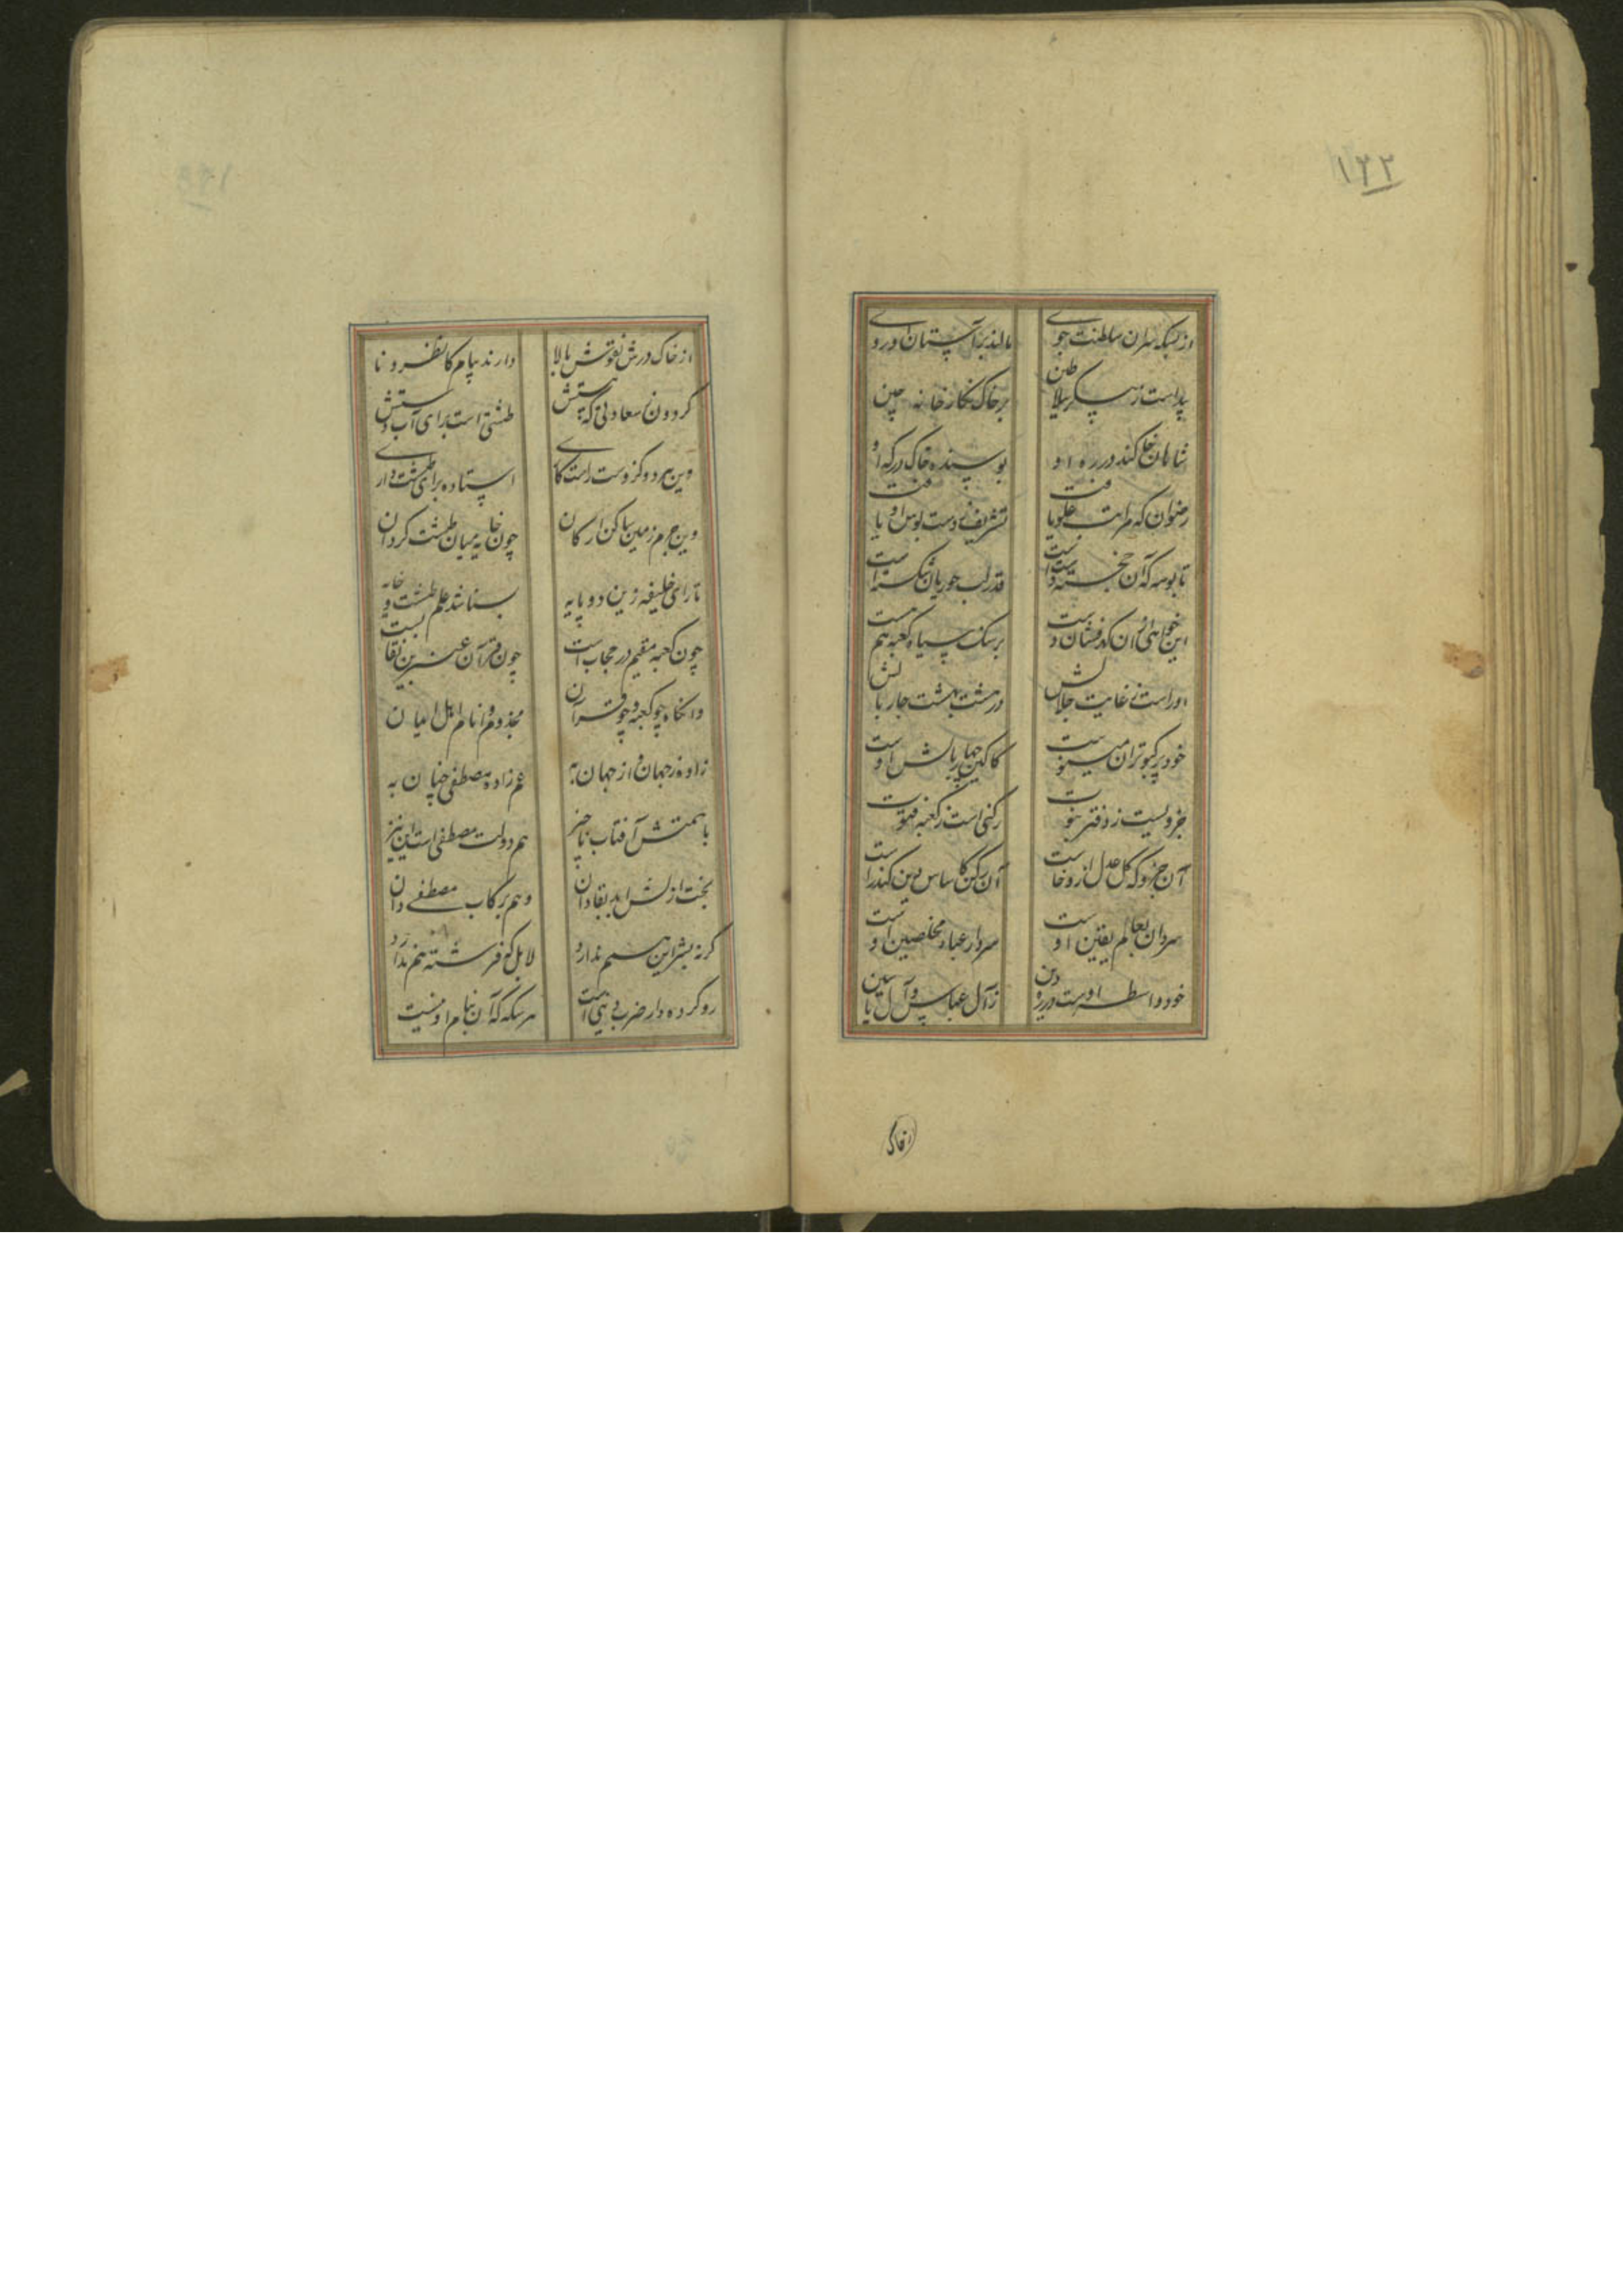 ۱۲۲
از بسکه سران سلطنت جوی مالند بر آستان او روی
پیداست ز پیکر سلاطین بر خاک نگارخانه چین
شاهان خلع کنند در ره او بوسنده خاک درگه او
رضوان که مراتب علو یافت تشریف ز دست بوس او یافت
تا بوسه که آن خجسته دست است قدر لب حوریان شکسته است
این خواهی از آن گهرفشان دست بر سنگ سیاه کعبه هم هست
او راست ز غایت جلالش در هشت بهشت چار بالش
خود پر کبوتران مینوست کاگین چهار بالش اوست
جزویست ز دفتر نبوت رکنی است ز کعبه فتوت
آن جزو که کل عدل ازو خاست آن رکن کاساس دین کند راست
سردان بعالم یقین اوست سردار عباد مخلصین اوست
خود واسطه اوست در ره دین ز آل عباس و آل یاسین
از خاک
از خاک درش نقوش بالا دارند پیام کانظرونا
گردون سعادتی که هستش طشتی است برای آب دستش
وین هر دو گز دست راست کای استاده برای طشت داری
وین جرم زمین ساکن ارکان چون خایه میان طشت گردان
تا رای خلیفه زین دو پایه بشناسد علم طشت و خایه
چون کعبه مقیم در حجاب است چون قرآن عنبرین نقاب است
وانگاه چو کعبه و چو قرآن مخدوم انام و اهل ایمان
زاده ز جهان و از جهان به عم زاده مصطفی چنان به
با همتش آفتاب ناچیز هم دولت مصطفی است این نیز
بخت ازلش ابد بقا دان وهم برکاب مصطفی دان
گر نه بشر این سیم ندارد لا بل که فرشته هم ندارد
رو کرده دار ضرب دینی است هر سکه که آن بنام او نیست